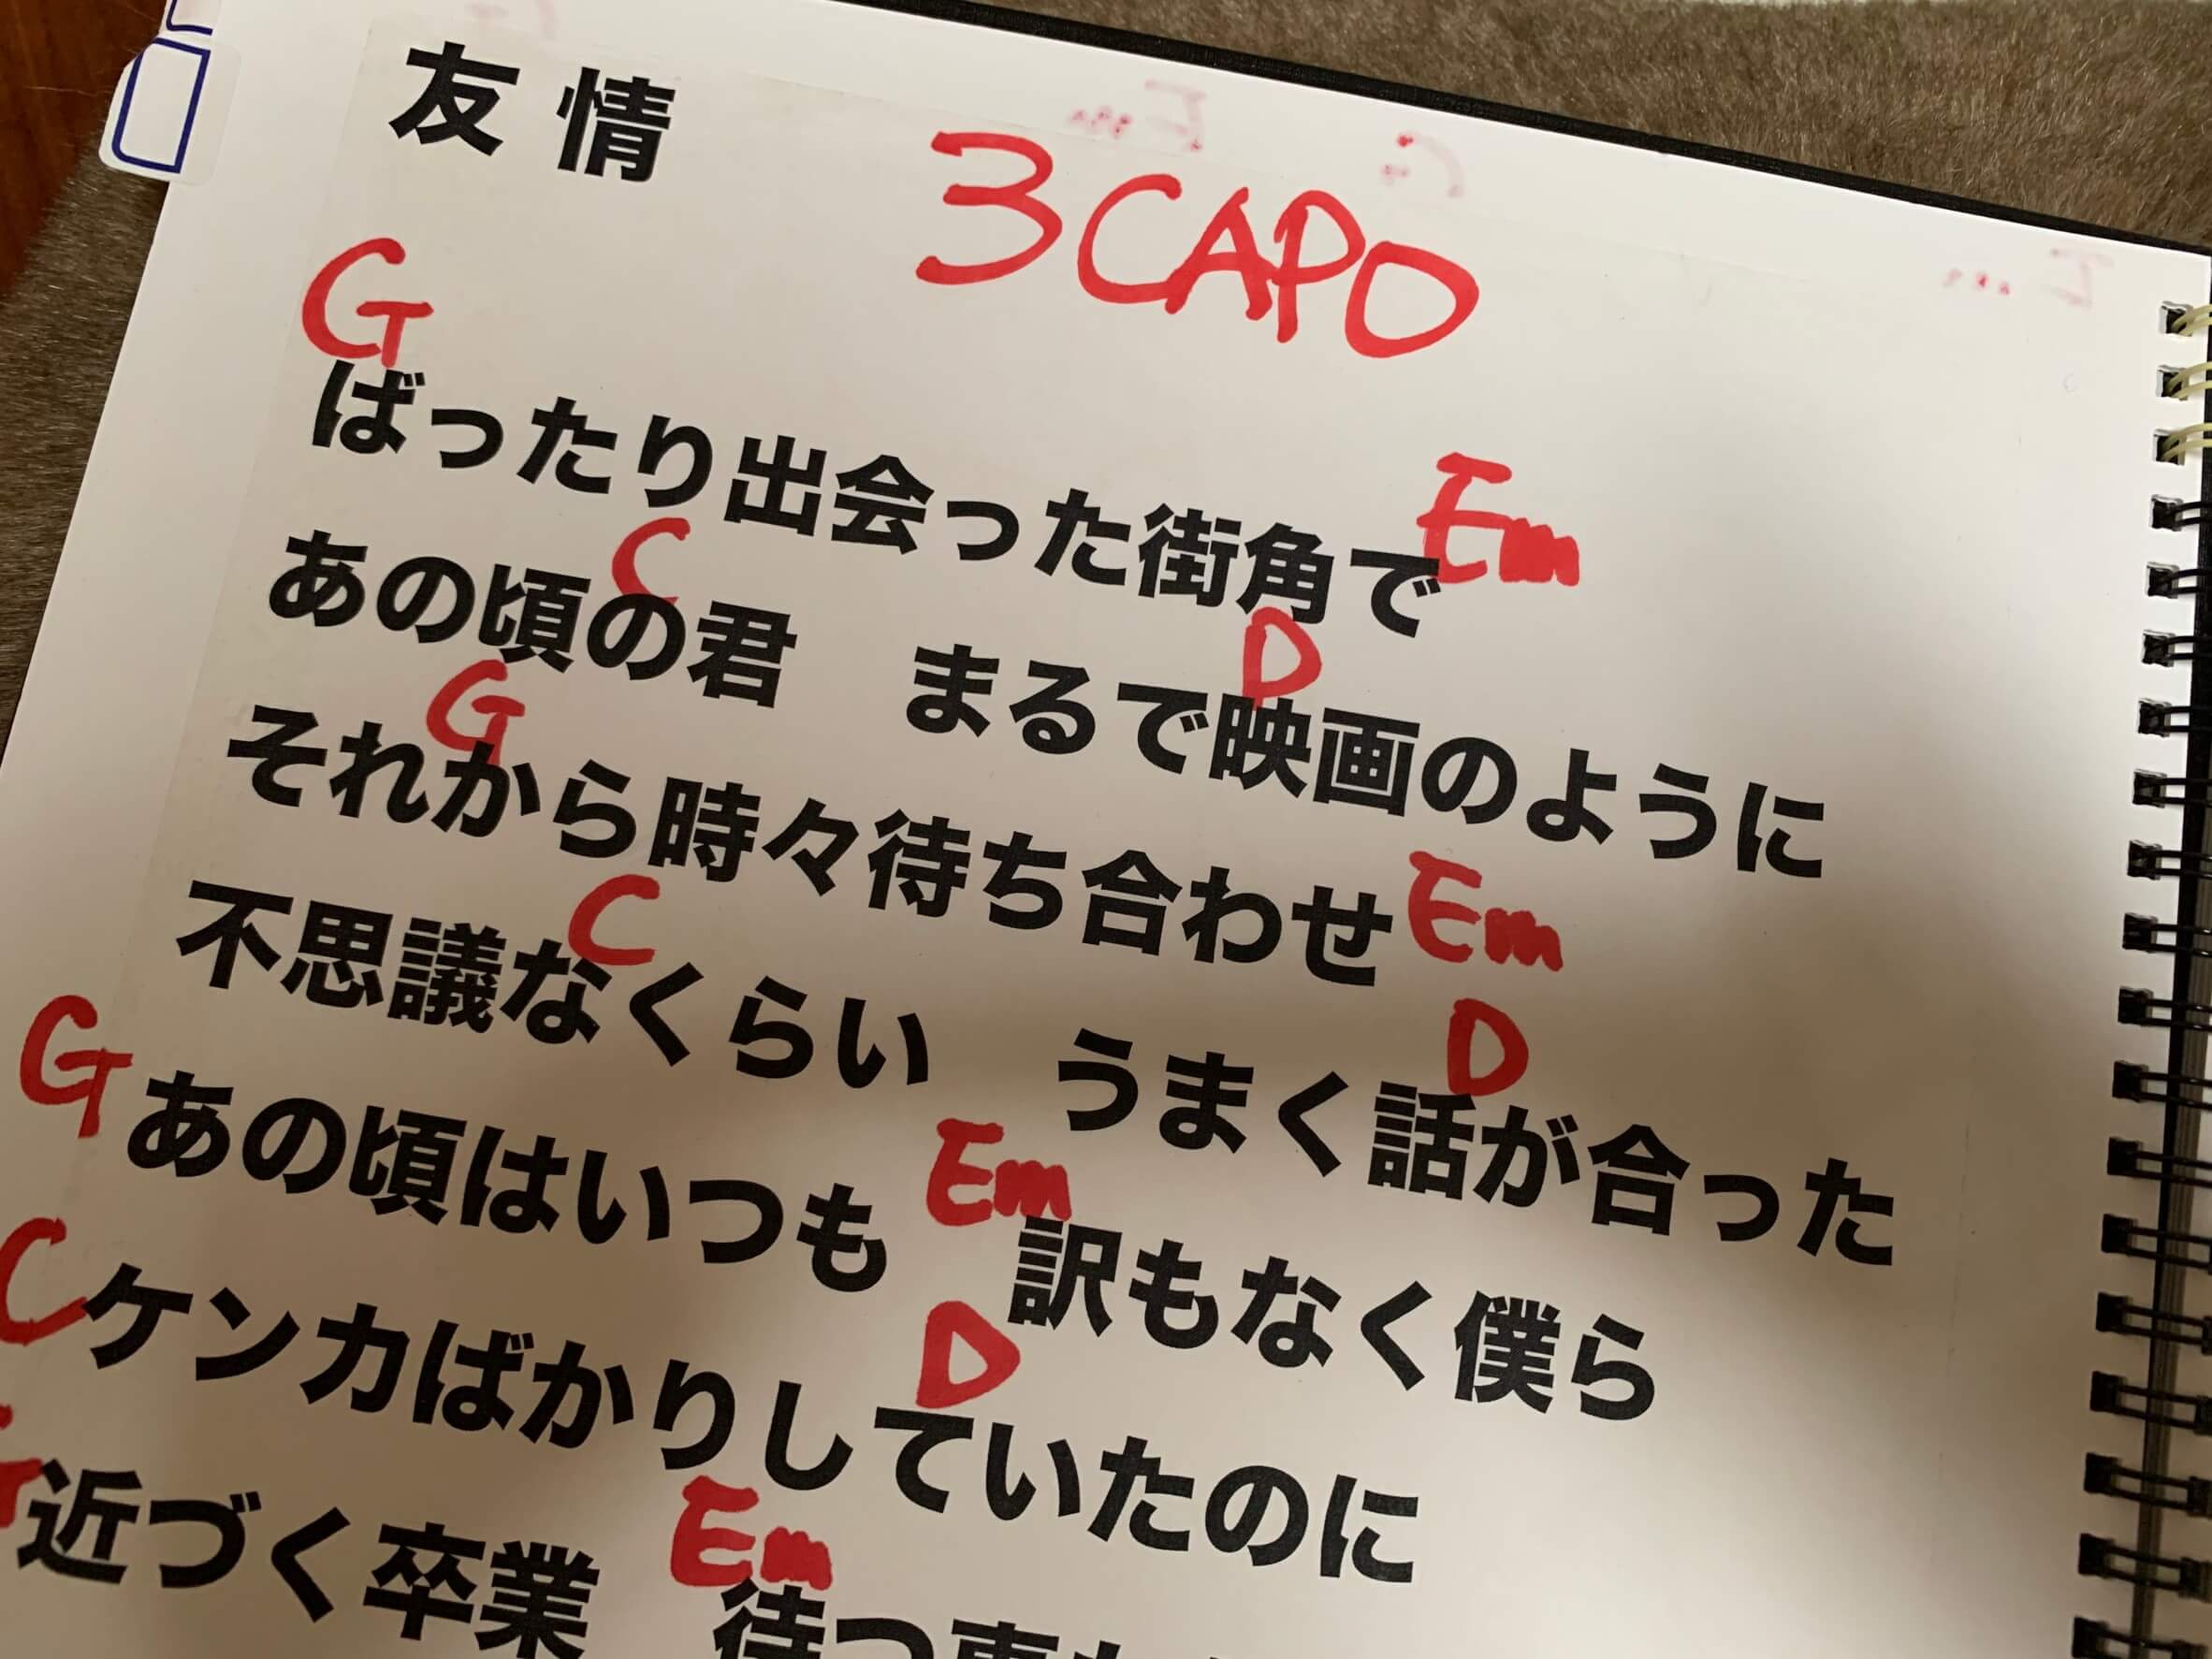 友情
3CAPO
G
ばったり出会った街角で Em
C D
あの頃の君　まるで映画のように
G
それから時々待ち合わせ Em
C D
不思議なくらい　うまく話が合った
G Em
あの頃はいつも　訳もなく僕ら
C D
ケンカばかりしていたのに
G Em
近づく卒業　待つ